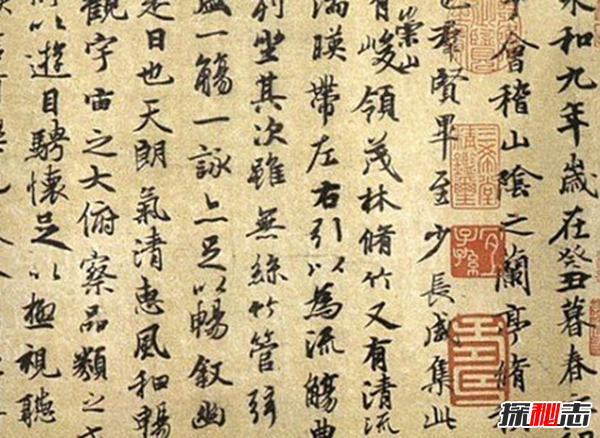 永和九年歲在癸丑暮春
會稽山陰之蘭亭脩
也羣賢畢至少長咸集此
有崇山峻領茂林脩竹又有清流
湍暎帶左右引以為流觴曲
列坐其次雖無絲竹管弦
盛一觴一詠亦足以暢敘幽
是日也天朗氣清惠風和暢
觀宇宙之大俯察品類之
所以遊目騁懷足以極視聽
三希堂精鑑璽
宜子孫
探秘志